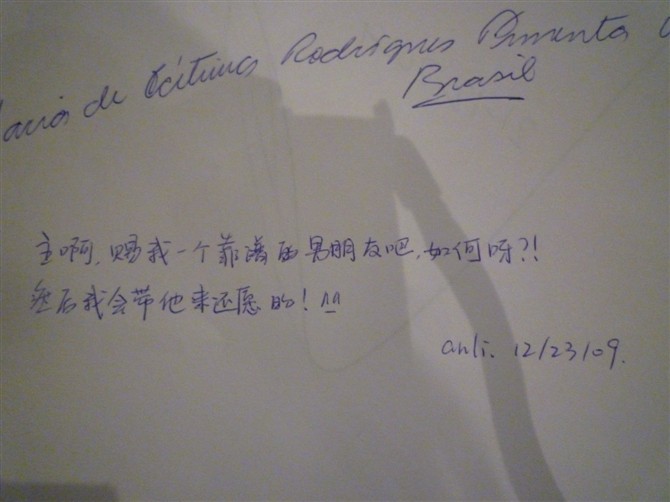 de Rodrigues Pimenta
Brasil
主啊，赐我一个靠谱的男朋友吧，如何呀?!
然后我会带他来还愿的! ^_^
anli. 12/23/09.